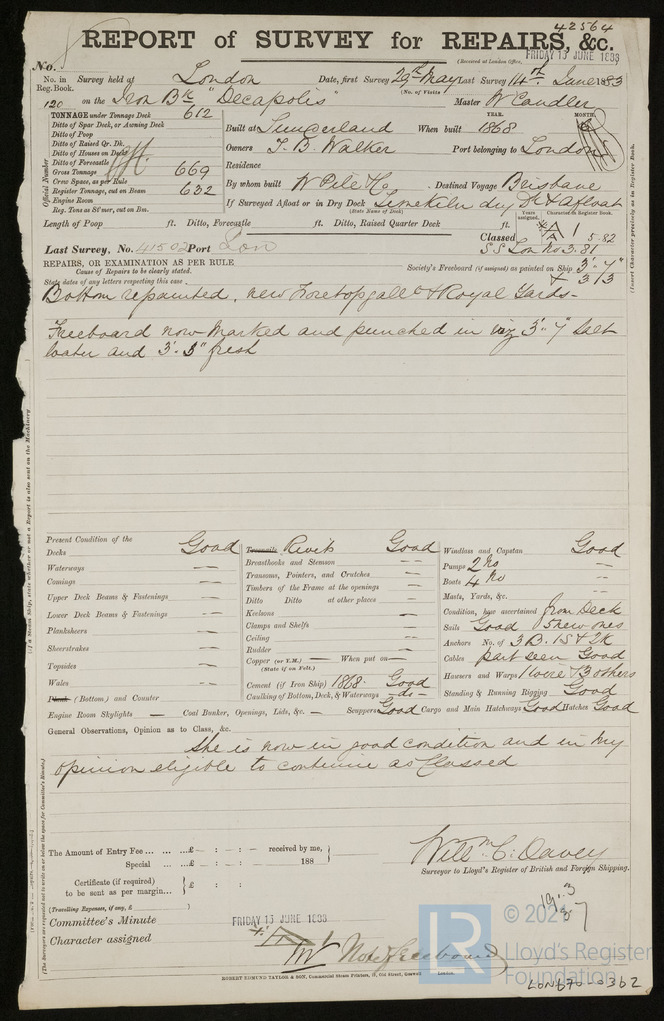 42564
REPORT of SURVEY for REPAIRS, &c.
No.
(Received at London Office, FRIDAY 15 JUNE 1883
No. in Reg. Book. Survey held at London Date, first Survey 29th May Last Survey 14th June 1883
120 on the Iron Bk "Decapolis" (No. of Visits) Master W Candler
TONNAGE under Tonnage Deck 612
Ditto of Spar Deck, or Awning Deck
Ditto of Poop
Ditto of Raised Qr. Dk.
Ditto of Houses on Deck
Ditto of Forecastle
Gross Tonnage 669
Crew Space, as per Rule
Register Tonnage, cut on Beam 632
Engine Room
Reg. Tons as St'mer, cut on Bm.
Official Number
Built at Sunderland When built YEAR. 1868 MONTH.
Owners T. B. Walker Port belonging to London
Residence
By whom built W Pile & Co. Destined Voyage Brisbane
If Surveyed Afloat or in Dry Dock Limekiln dry Dk & afloat
(State Name of Dock)
Length of Poop ft. Ditto, Forecastle ft. Ditto, Raised Quarter Deck ft.
Years assigned. Character in Register Book.
Classed A 1 5.82
S S Lon No 3.81
Last Survey, No. 41502 Port Lon
REPAIRS, OR EXAMINATION AS PER RULE
Cause of Repairs to be clearly stated.
State dates of any letters respecting this case
Society's Freeboard (if assigned) as painted on Ship 3'.7"
& 3 / 3
Bottom repainted, new Foretopgallt & Royal Yards-
Freeboard now marked and punched in viz 3'.7" Salt
water and 3'.3" fresh
Present Condition of the
Decks Good
Waterways
Comings
Upper Deck Beams & Fastenings
Lower Deck Beams & Fastenings
Planksheers
Sheerstrakes
Topsides
Wales
Plank (Bottom) and Counter
Engine Room Skylights — Coal Bunker, Openings, Lids, &c. — Scuppers Good Cargo and Main Hatchways Good Hatches Good
Treenails Rivets Good
Breasthooks and Stemson
Transoms, Pointers, and Crutches
Timbers of the Frame at the openings
Ditto Ditto at other places
Keelsons
Clamps and Shelfs
Ceiling
Rudder
Copper (or Y.M.) — When put on —
(State if on Felt.)
Cement (if Iron Ship) 1868. Good
Caulking of Bottom, Deck, & Waterways — do —
Windlass and Capstan Good
Pumps 2 No
Boats 4 No
Masts, Yards, &c.
Condition, how ascertained from Deck
Sails Good 5 new ones
Anchors No. of 3B. 1S & 2K
Cables part seen Good
Hawsers and Warps 1 wire & 3 others
Standing & Running Rigging Good
General Observations, Opinion as to Class, &c.
She is now in good condition and in my
opinion eligible to continue as Classed
The Amount of Entry Fee ... £ : : received by me,
Special ... £ : : 188
Certificate (if required) to be sent as per margin... £ : :
(Travelling Expenses, if any, £ )
Willm C. Davey
Surveyor to Lloyd's Register of British and Foreign Shipping.
Committee's Minute FRIDAY 15 JUNE 1883
Character assigned
Note Freeboard
ROBERT EDMUND TAYLOR & SON, Commercial Steam Printers, 19, Old Street, Goswell London.
LR
Lloyd's Register
Foundation
LON670-0362